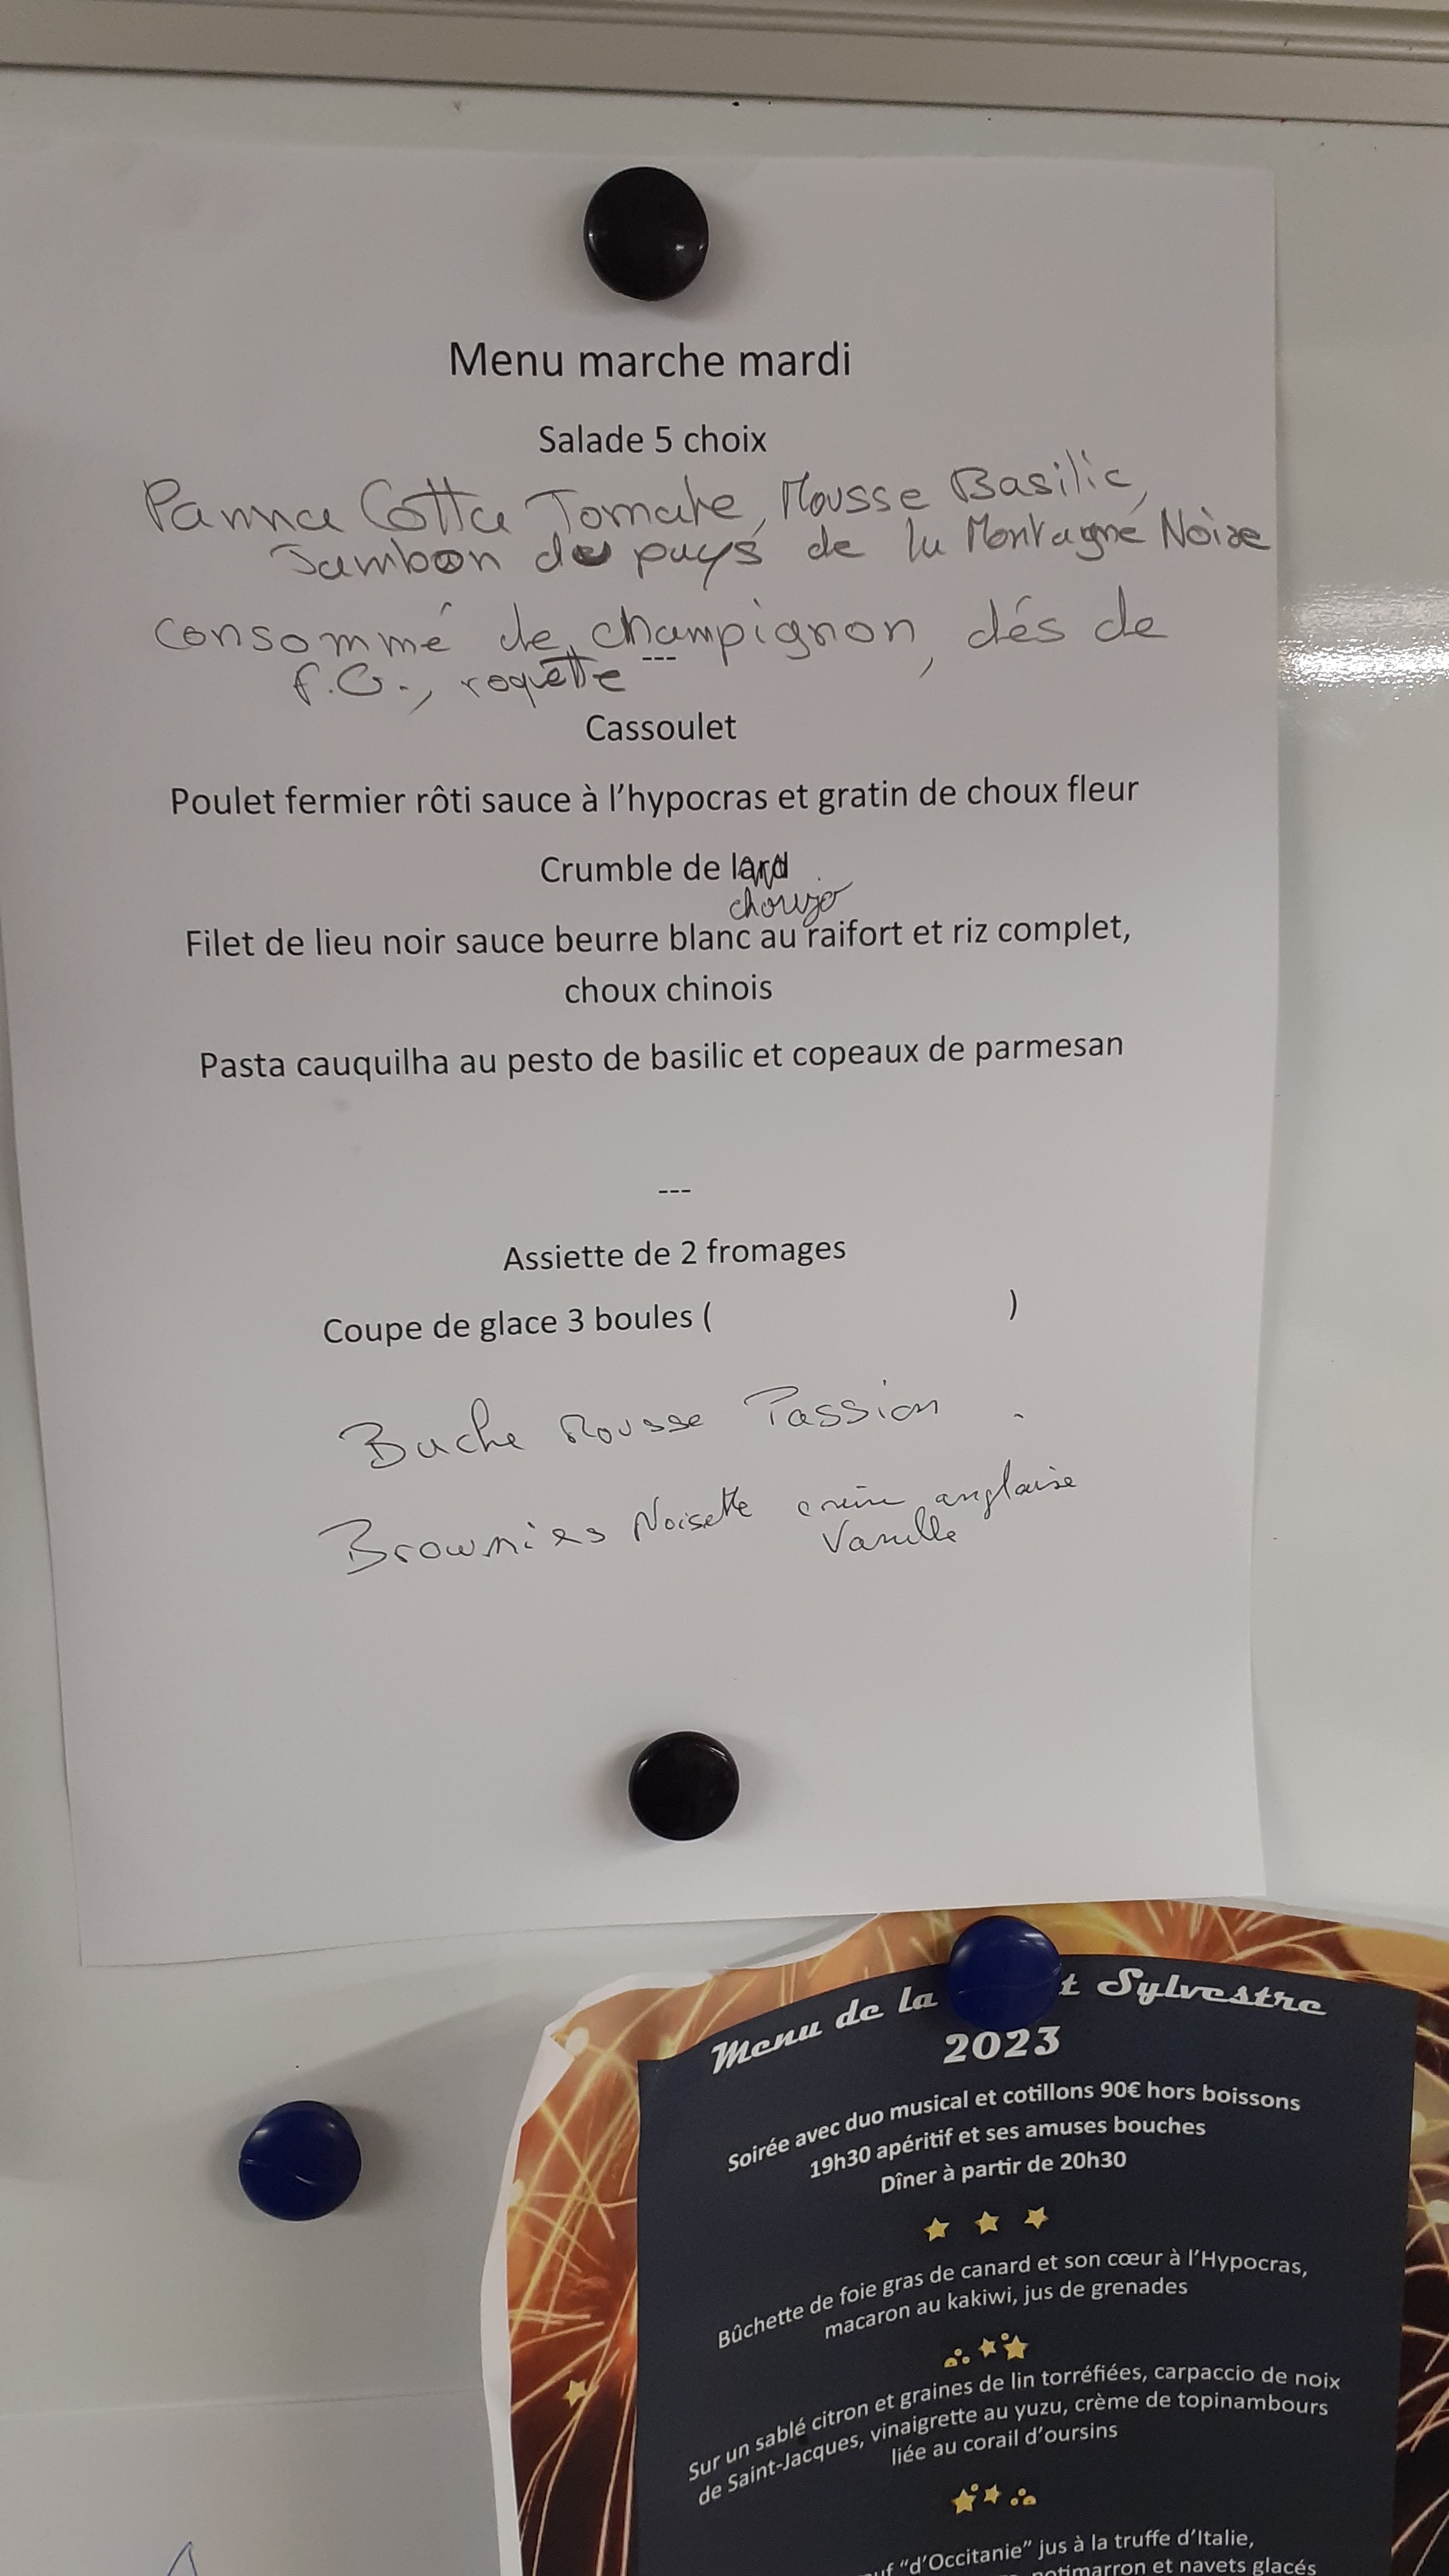 Menu marche mardi
Salade 5 choix
Panna Cotta Tomate, Mousse Basilic,
Jambon de pays de la Montagne Noire
consommé de champignon, dés de
---
f.G., roquette
Cassoulet
Poulet fermier rôti sauce à l'hypocras et gratin de choux fleur
Crumble de lard
Filet de lieu noir sauce beurre blanc au raifort et riz complet,
choux chinois
Pasta cauquilha au pesto de basilic et copeaux de parmesan
---
Assiette de 2 fromages
Coupe de glace 3 boules ( )
Buche Mousse Passion
Brownies Noisette crème anglaise
Vanille
Menu de la t Sylvestre
2023
Soirée avec duo musical et cotillons 90€ hors boissons
19h30 apéritif et ses amuses bouches
Dîner à partir de 20h30
Bûchette de foie gras de canard et son cœur à l'Hypocras,
macaron au kakiwi, jus de grenades
Sur un sablé citron et graines de lin torréfiées, carpaccio de noix
de Saint-Jacques, vinaigrette au yuzu, crème de topinambours
liée au corail d'oursins
"d'Occitanie" jus à la truffe d'Italie,
potimarron et navets glacés